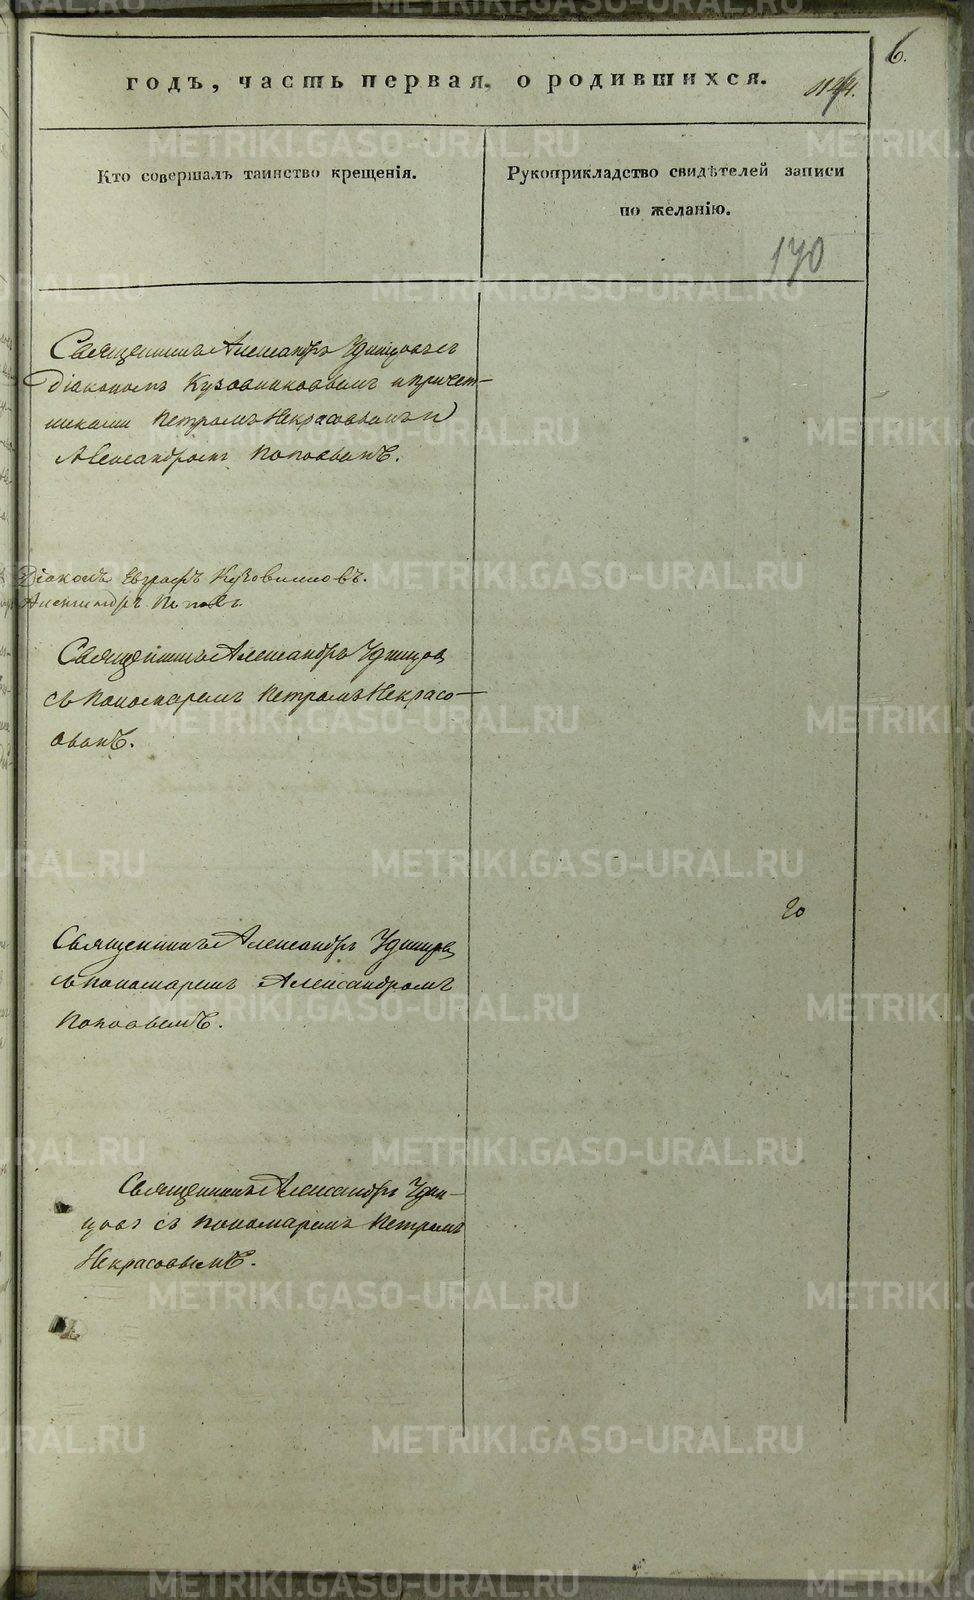 6.
годъ, часть первая, о родившихся.
Кто совершалъ таинство крещенія.
Рукоприкладство свидѣтелей записи
по желанію.
170
Священникъ Александръ Удинцовъ съ
Діакономъ Кузовниковымъ и причет-
никами Петромъ Некрасовымъ и
Александромъ Поповымъ.
Діаконъ Евграфъ Кузовниковъ.
Александръ Поповъ
Священникъ Александръ Удинцов
съ пономаремъ Петромъ Некрасо-
вымъ.
20
Священникъ Александръ Удинцов
съ пономаремъ Александромъ
Поповымъ.
Священникъ Александръ Удин-
цовъ съ пономаремъ Петромъ
Некрасовымъ.
METRIKI.GASO-URAL.RU